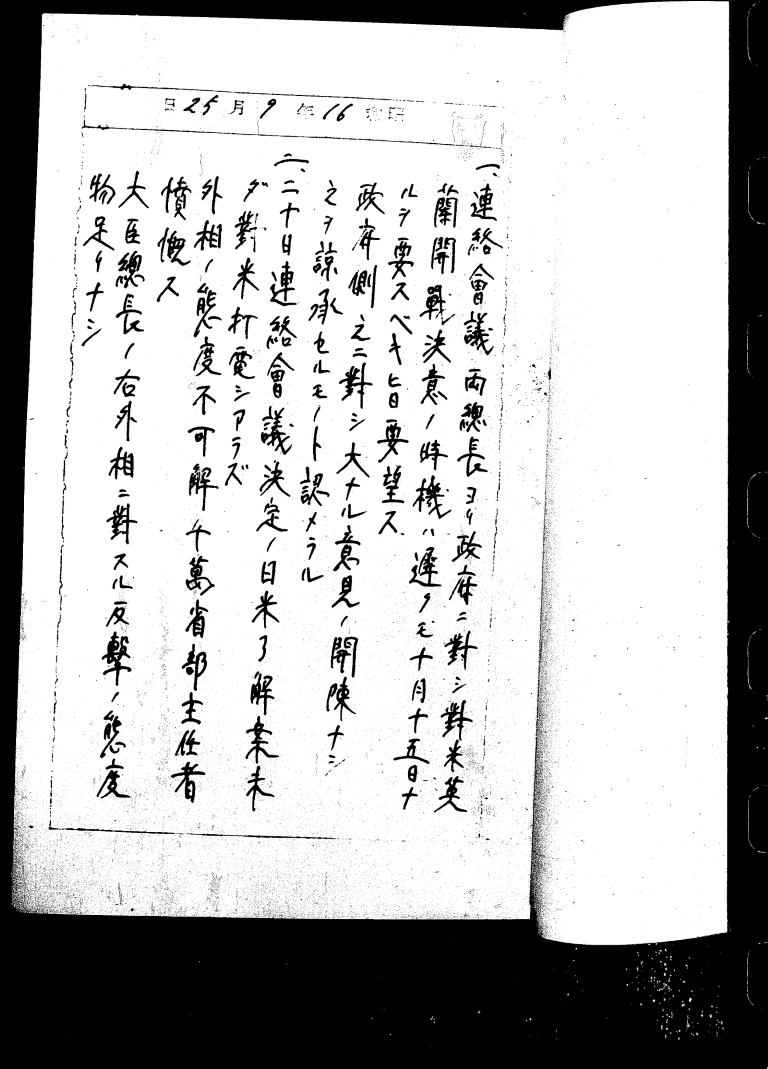 昭和16年9月25日
一、連絡會議両總長ヨリ政府ニ對シ對米英
蘭開戰決意ノ時機ハ遲クモ十月十五日ナ
ルヲ要スベキ旨要望ス
政府側之ニ對シ大ナル意見ノ開陳ナシ
之ヲ諒承セルモノト認メラル
二、二十日連絡會議決定ノ日米了解案未
ダ對米打電シアラズ
外相ノ態度不可解千萬省部主任者
憤慨ス
大臣總長ノ右外相ニ對スル反擊ノ態度
物足リナシ